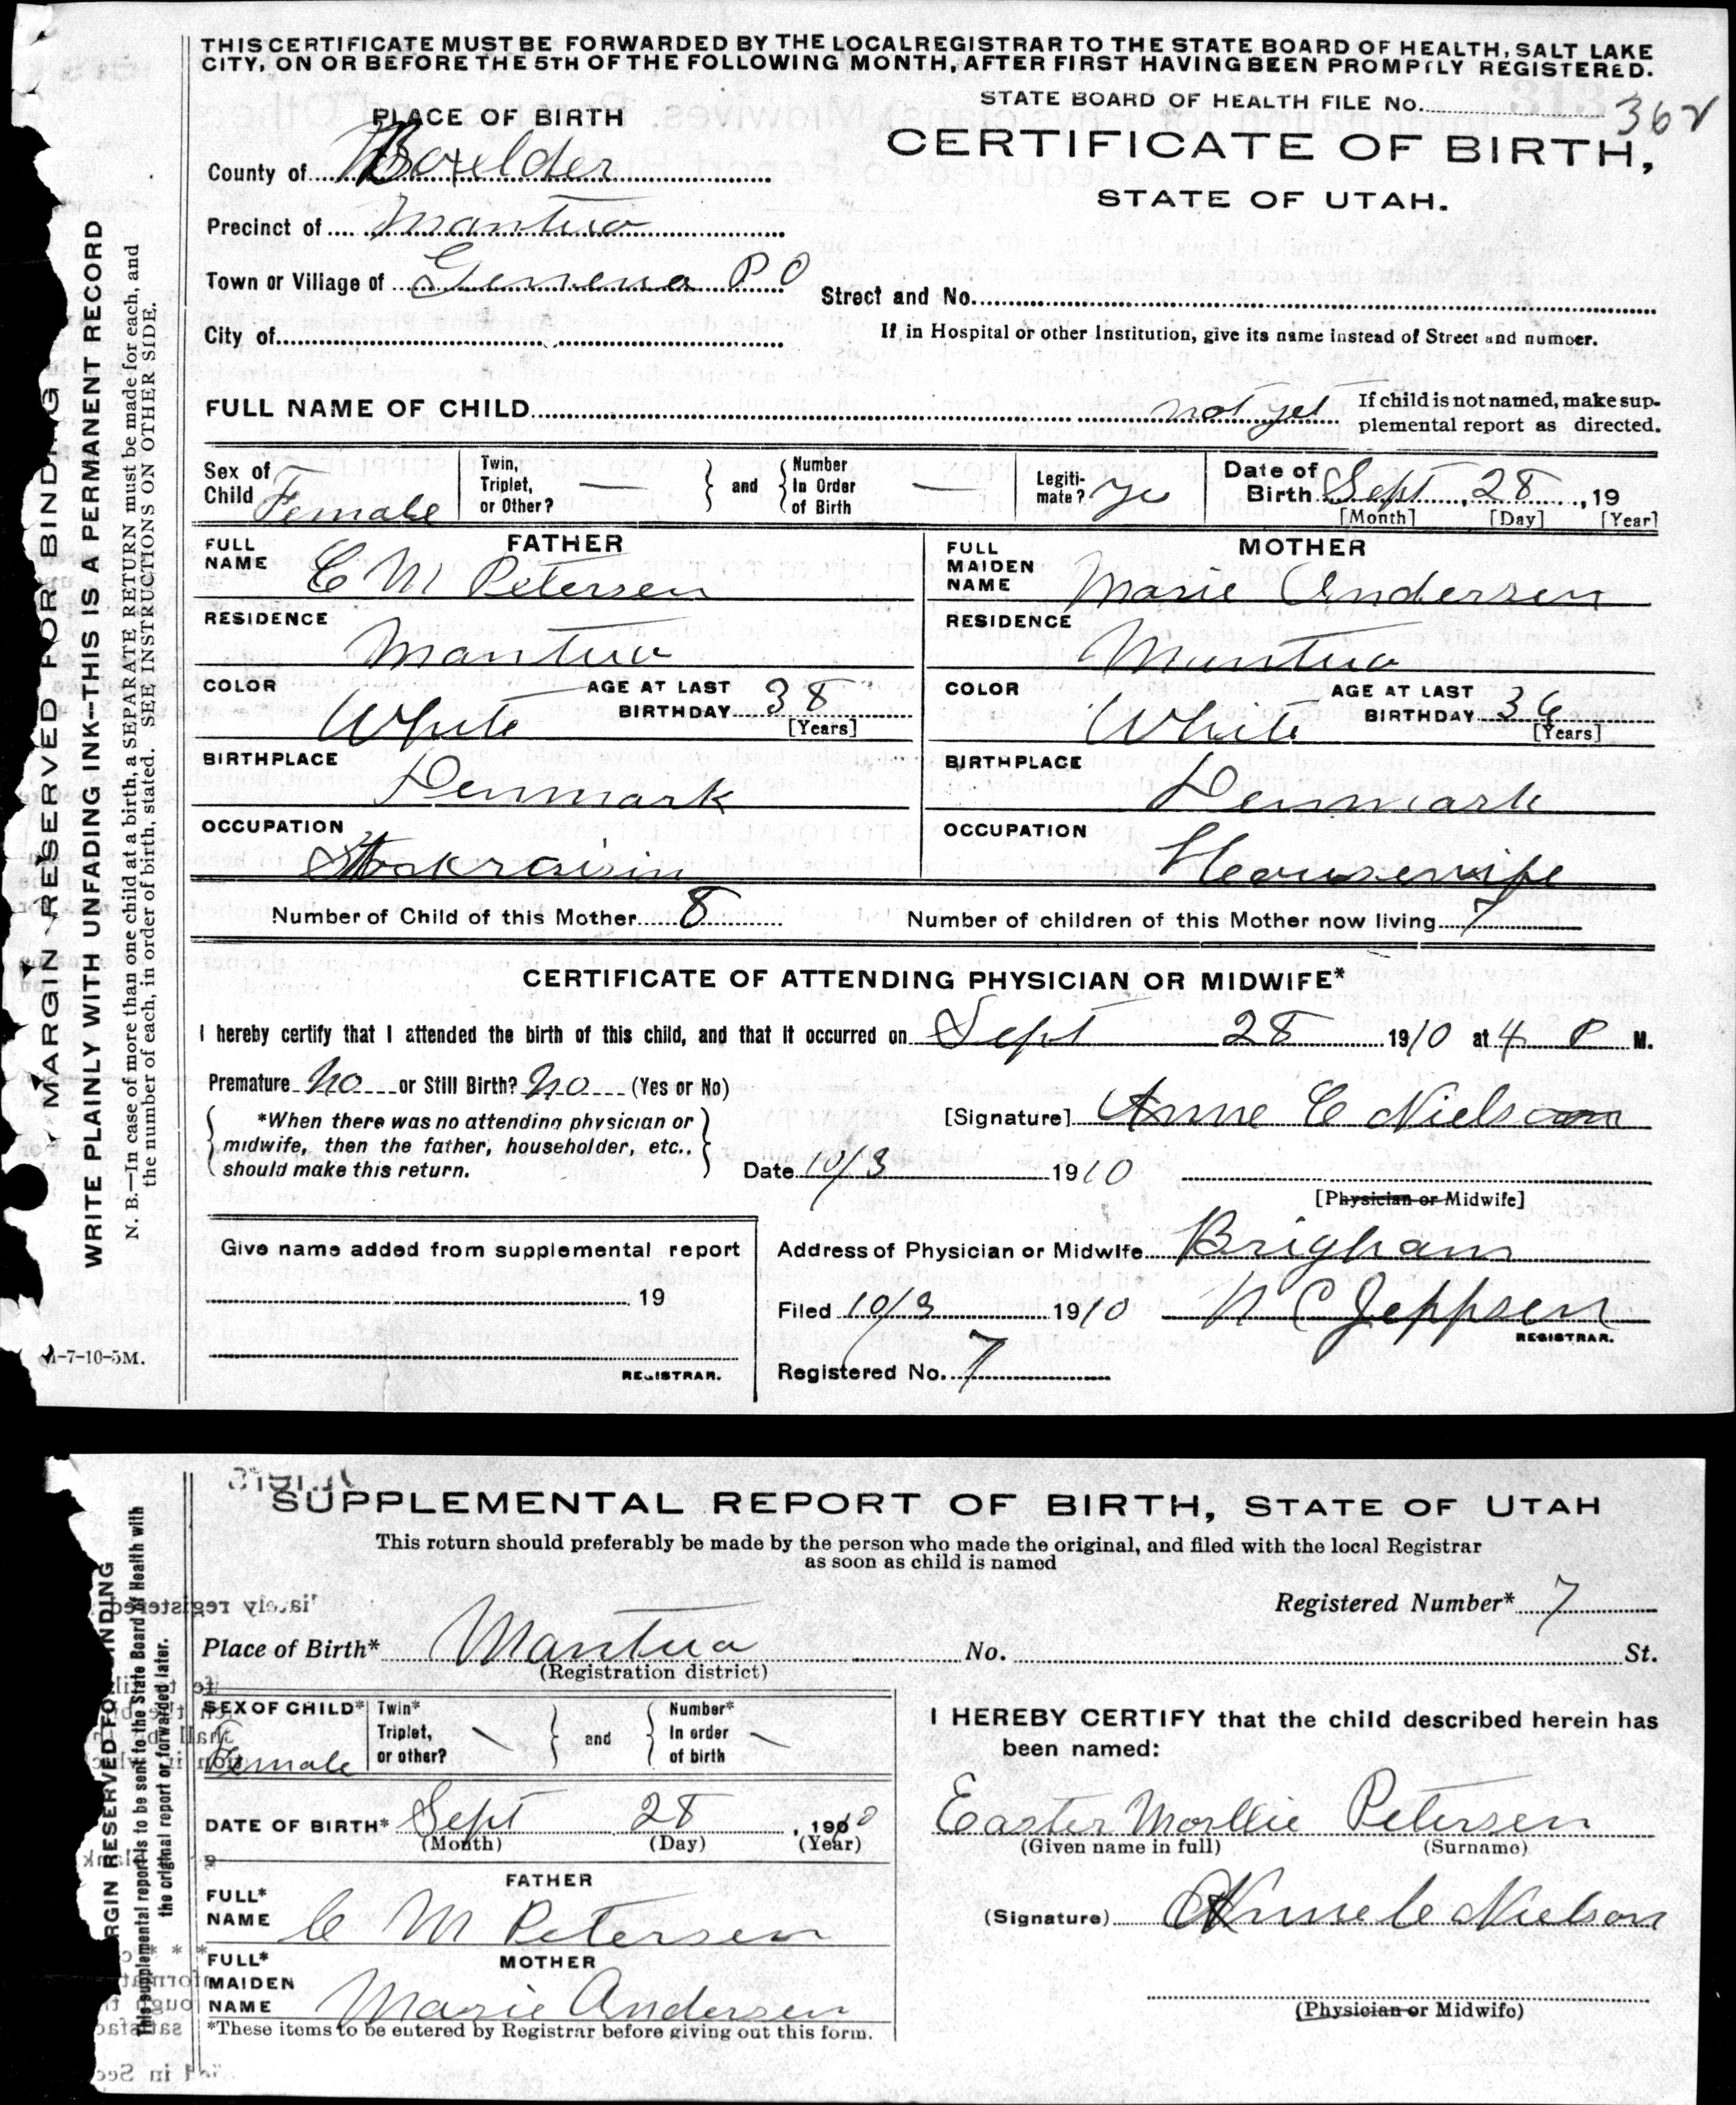 THIS CERTIFICATE MUST BE FORWARDED BY THE LOCAL REGISTRAR TO THE STATE BOARD OF HEALTH, SALT LAKE
CITY, ON OR BEFORE THE 5TH OF THE FOLLOWING MONTH, AFTER FIRST HAVING BEEN PROMPTLY REGISTERED.
STATE BOARD OF HEALTH FILE No. 362
PLACE OF BIRTH
CERTIFICATE OF BIRTH,
STATE OF UTAH.
County of Boxelder
Precinct of Mantua
Town or Village of Geneva P O
Street and No.
City of
If in Hospital or other Institution, give its name instead of Street and number.
FULL NAME OF CHILD not yet If child is not named, make sup-
plemental report as directed.
Sex of Child Female
Twin, Triplet, or Other? — and Number In Order of Birth —
Legiti-mate? yes
Date of Birth Sept 28, 19
[Month] [Day] [Year]
FATHER
FULL NAME C M Petersen
RESIDENCE Mantua
COLOR White AGE AT LAST BIRTHDAY 38 [Years]
BIRTHPLACE Denmark
OCCUPATION Stockraisin
MOTHER
FULL MAIDEN NAME Marie Andersen
RESIDENCE Mantua
COLOR White AGE AT LAST BIRTHDAY 36 [Years]
BIRTHPLACE Denmark
OCCUPATION Housewife
Number of Child of this Mother 8 Number of children of this Mother now living 7
CERTIFICATE OF ATTENDING PHYSICIAN OR MIDWIFE*
I hereby certify that I attended the birth of this child, and that it occurred on Sept 28 1910 at 4 P M.
Premature No or Still Birth? No (Yes or No)
*When there was no attending physician or
midwife, then the father, householder, etc.,
should make this return.
[Signature] Anne C Nielson
Date 10/3 1910
[Physician or Midwife]
Give name added from supplemental report
19
REGISTRAR.
Address of Physician or Midwife Brigham
Filed 10/3 1910 N C Jeppsen
REGISTRAR.
Registered No. 7
MARGIN RESERVED FOR BINDING
WRITE PLAINLY WITH UNFADING INK--THIS IS A PERMANENT RECORD
N. B.—In case of more than one child at a birth, a SEPARATE RETURN must be made for each, and
the number of each, in order of birth, stated. SEE INSTRUCTIONS ON OTHER SIDE.
-7-10-5M.
SUPPLEMENTAL REPORT OF BIRTH, STATE OF UTAH
This return should preferably be made by the person who made the original, and filed with the local Registrar
as soon as child is named
Registered Number* 7
Place of Birth* Mantua No. St.
(Registration district)
SEX OF CHILD* Female
Twin* Triplet, or other? and Number* In order of birth
DATE OF BIRTH* Sept 28, 1910
(Month) (Day) (Year)
FATHER
FULL* NAME C M Petersen
MOTHER
FULL* MAIDEN NAME Marie Andersen
*These items to be entered by Registrar before giving out this form.
I HEREBY CERTIFY that the child described herein has
been named:
Easter Mollie Petersen
(Given name in full) (Surname)
(Signature) Anne C Nielson
(Physician or Midwife)
RGIN RESERVED FOR BINDING
This supplemental report is to be sent to the State Board of Health with
the original report or forwarded later.